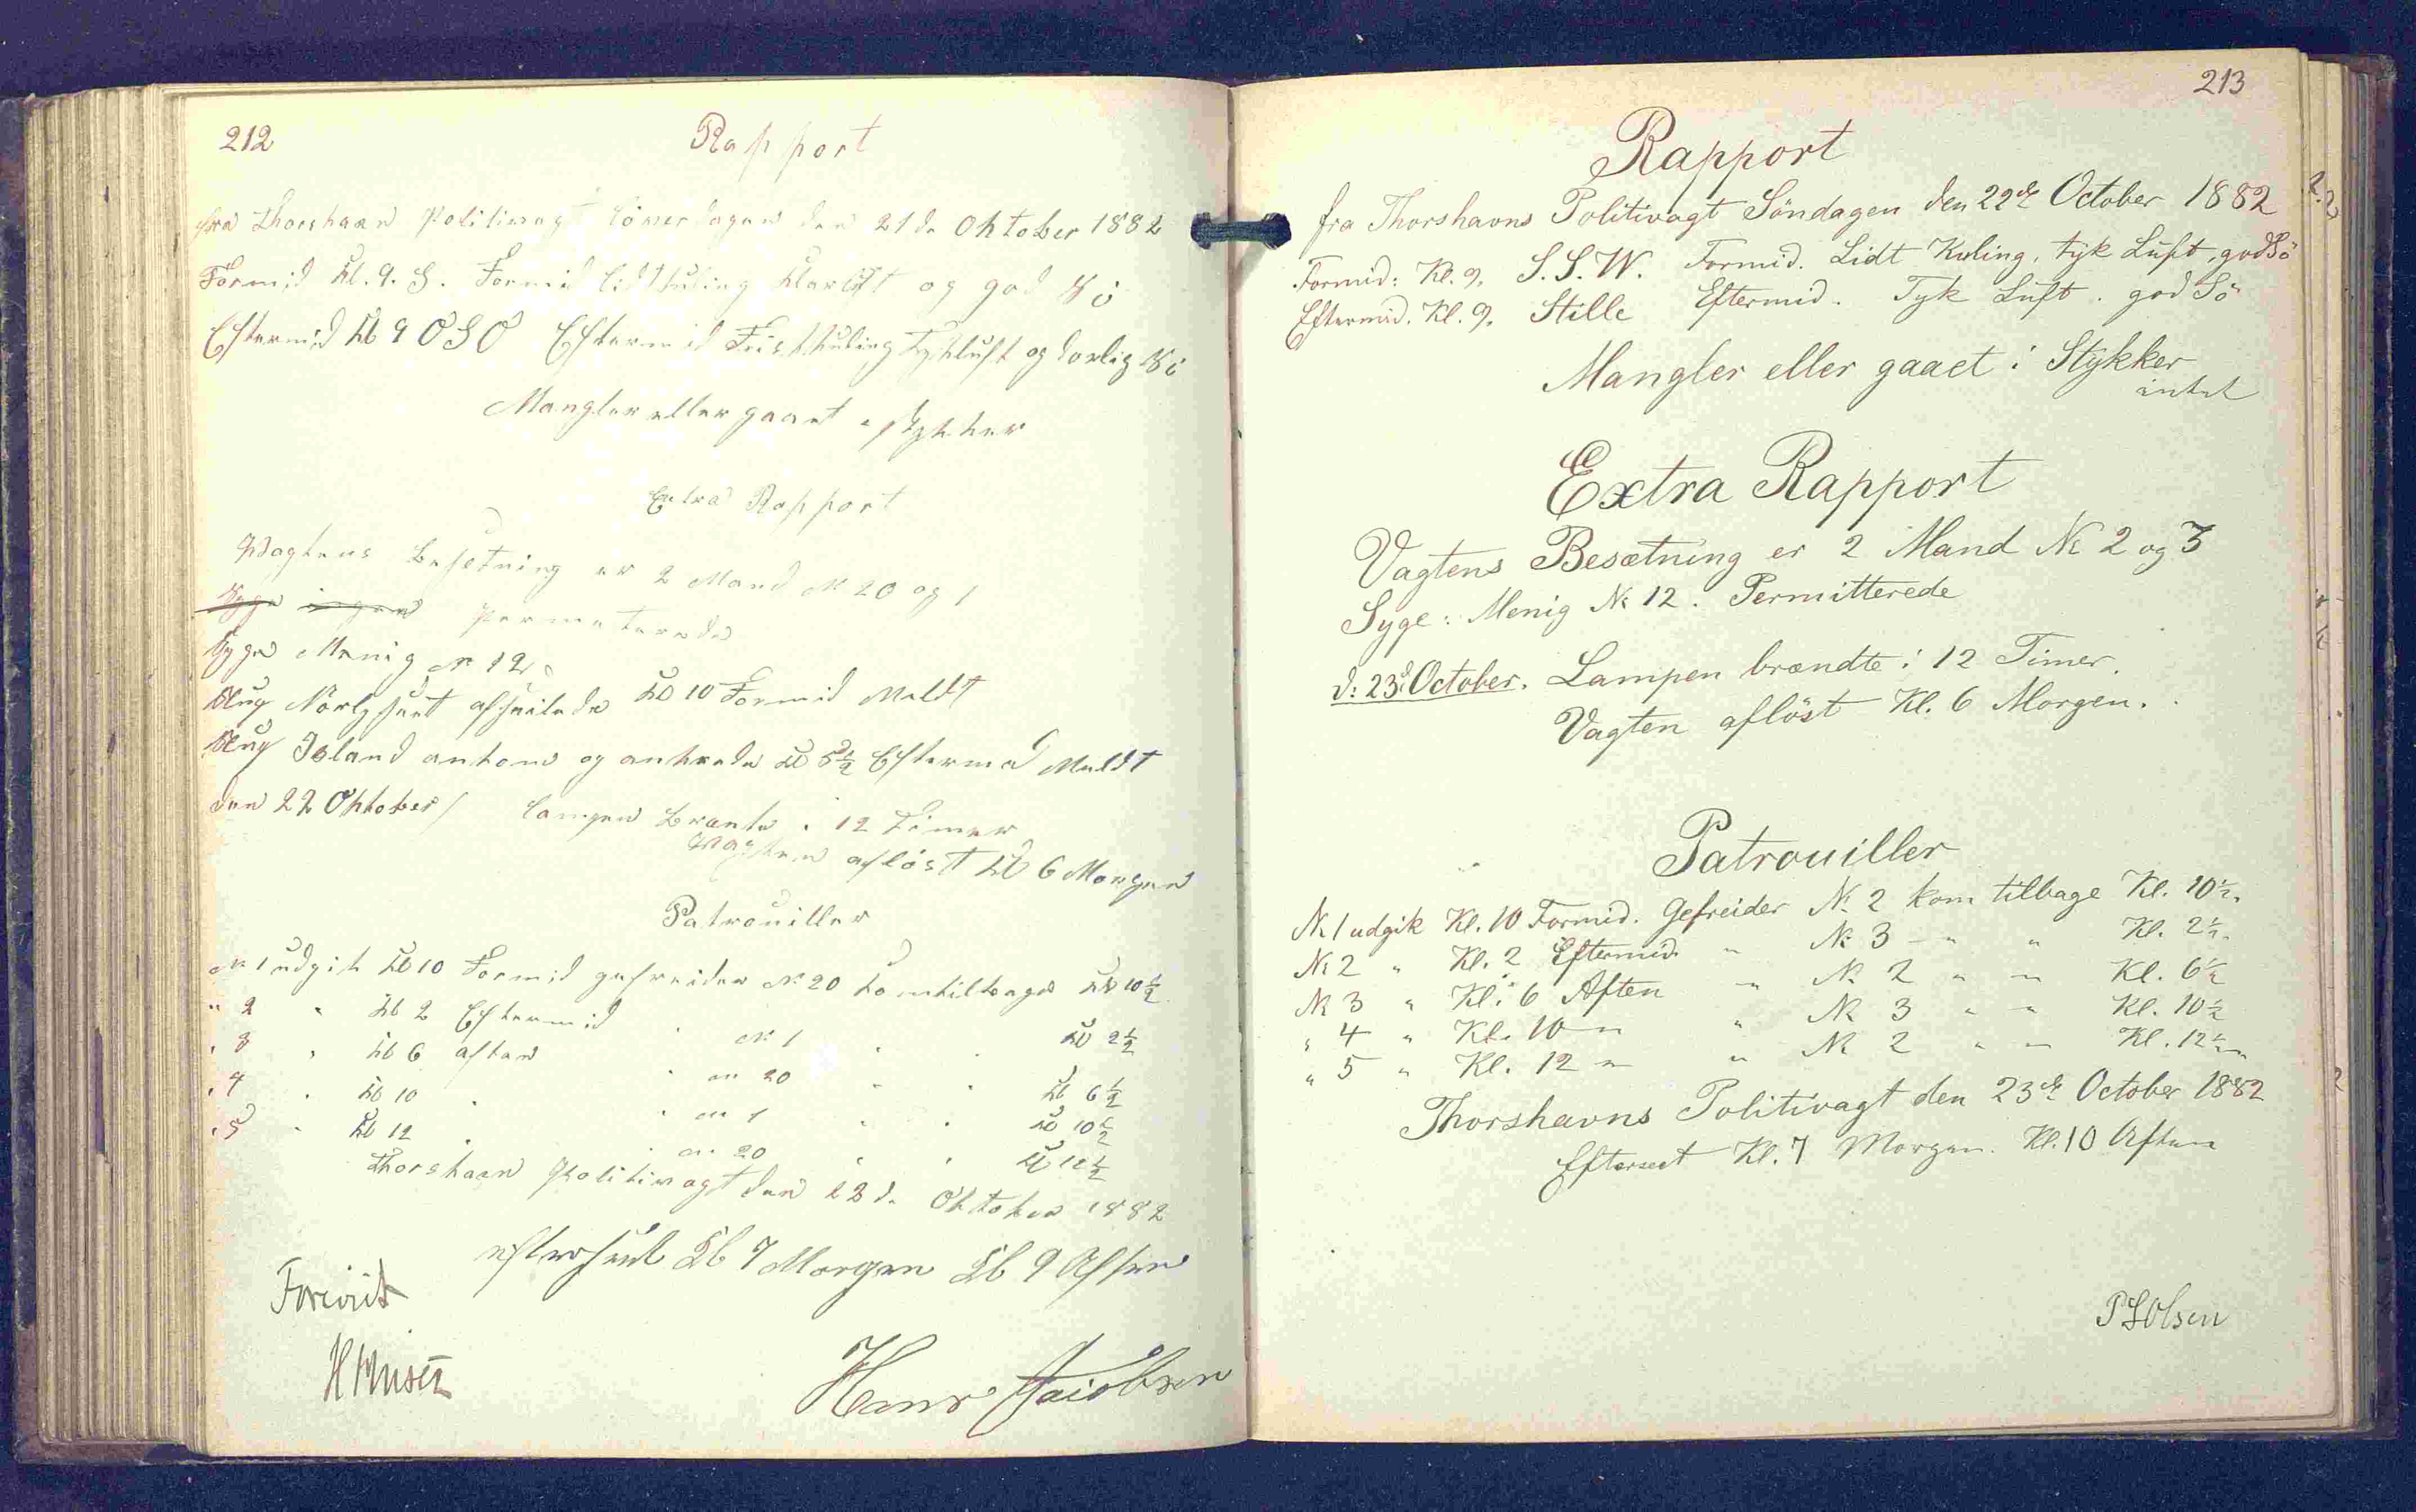 212
Rapport
fra Thorshavn Politivagt Löverdagen den 21de Oktober 1882
Formid Kl. 9. S. Formid lidt Kuling Klarluft og god Sö
Eftermid Kl 9 OSO Eftermid Frisk Kuling Tykluft og dorlig Sö
Mangler eller gaaet i stykker
Extra Rapport
Wagtens Besetning er 2 Mand N 20 og 1
Syge ingen Permeterede
Syge Menig N 12
Slup Nörlysunt afseilede Kl 10 Formid Meldt
Slup Island ankom og ankrede Kl 5½ Eftermid Meldt
den 22 Oktober / Lampen brænte i 12 Timer
Wagten aflöst Kl 6 Morgen
Patrouiller
N 1 udgik Kl 10 Formid gefreider N 20 kom tilbage Kl 10½
" 2 " Kl 2 Eftermid " N 1 " " Kl 2½
" 3 " Kl 6 aften " N 20 " " Kl 6½
" 4 " Kl 10 " " N 1 " " Kl 10½
" 5 " Kl 12 " " N 20 " " Kl 12½
Thorshavn Politivagt den 22de Oktober 1882
efterseet Kl 7 Morgen Kl 9 Aften
Forevist
Hans Jacobsen
213
Rapport
fra Thorshavns Politivagt Söndagen den 22de October 1882
Formid: Kl. 9. S.S.W. Formid. Lidt Kuling, tyk Luft, god Sö
Eftermid. Kl. 9. Stille Eftermid. Tyk Luft. god Sö
Mangler eller gaaet i Stykker
intet
Extra Rapport
Vagtens Besætning er 2 Mand No 2 og 3
Syge: Menig No 12. Permitterede
d: 23d October. Lampen brændte i 12 Timer.
Vagten aflöst Kl. 6 Morgen.
Patrouiller
No 1 udgik Kl. 10 Formid. Gefreider No 2 kom tilbage Kl. 10½.
No 2 " Kl. 2 Eftermid. " No 3 " " Kl. 2½.
No 3 " Kl. 6 Aften " No 2 " " Kl. 6½
" 4 " Kl. 10 " " No 3 " " Kl. 10½
" 5 " Kl. 12 " " No 2 " " Kl. 12½
Thorshavns Politivagt den 23de October 1882
Efterseet Kl. 7 Morgen. Kl. 10 Aften
P S Olsen